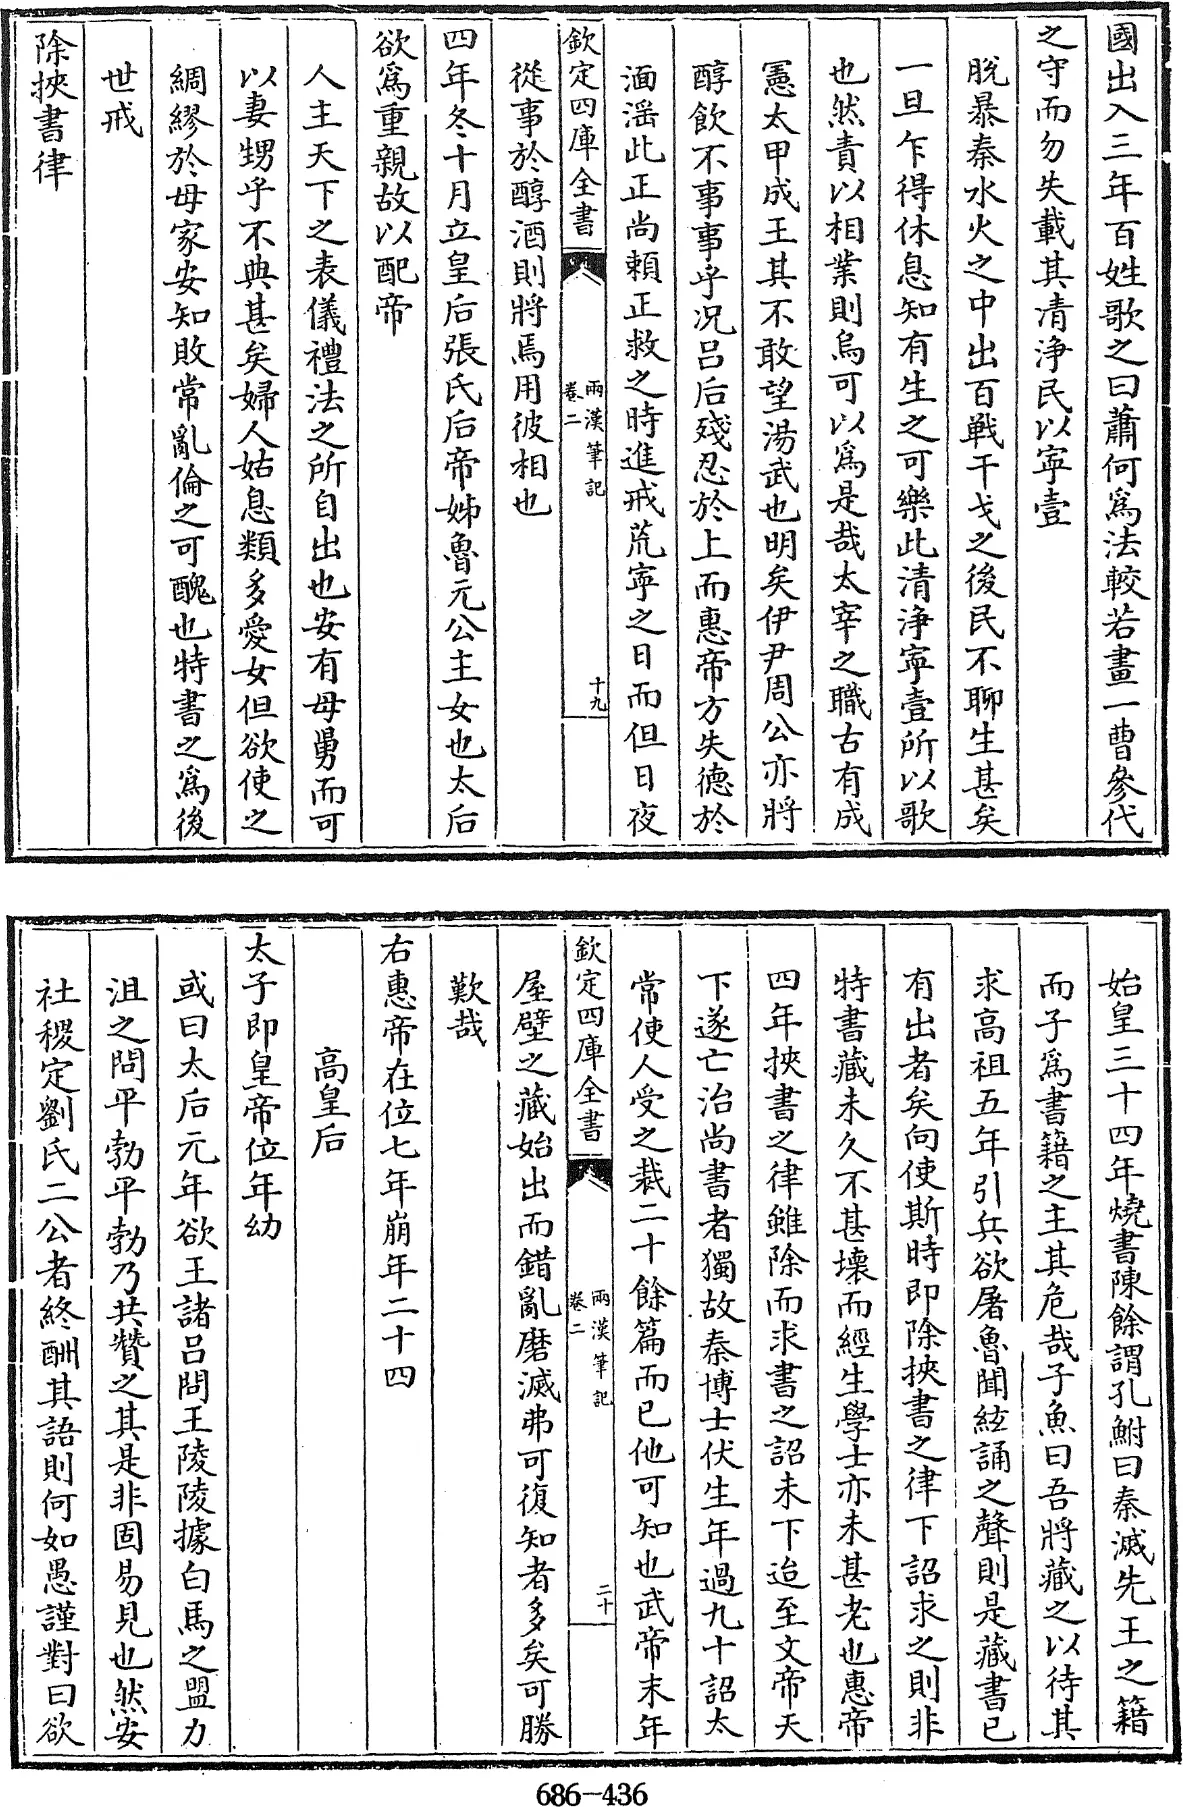 國出入三年百姓歌之曰蕭何爲法較若畫一曹參代
之守而勿失載其清淨民以寜壹
脫暴秦水火之中出百戰干戈之後民不聊生甚矣
一旦乍得休息知有生之可樂此清淨寜壹所以歌
也然責以相業則烏可以爲是哉太宰之職古有成
憲太甲成王其不敢望湯武也明矣伊尹周公亦將
醇飲不事事乎况吕后殘忍於上而惠帝方失德於
湎滛此正尚賴正救之時進戒荒寜之日而但日夜
欽定四庫全書
兩漢筆記
卷二
十九
從事於醇酒則將焉用彼相也
四年冬十月立皇后張氏后帝姊魯元公主女也太后
欲爲重親故以配帝
人主天下之表儀禮法之所自出也安有母舅而可
以妻甥乎不典甚矣婦人姑息類多愛女但欲使之
綢繆於母家安知敗常亂倫之可醜也特書之爲後
世戒
除挾書律
始皇三十四年燒書陳餘謂孔鮒曰秦滅先王之籍
而子爲書籍之主其危哉子魚曰吾將藏之以待其
求高祖五年引兵欲屠魯聞絃誦之聲則是藏書已
有出者矣向使斯時即除挾書之律下詔求之則非
特書藏未久不甚壞而經生學士亦未甚老也惠帝
四年挾書之律雖除而求書之詔未下迨至文帝天
下遂亡治尚書者獨故秦博士伏生年過九十詔太
常使人受之裁二十餘篇而已他可知也武帝末年
欽定四庫全書
兩漢筆記
卷二
二十
屋壁之藏始出而錯亂磨滅弗可復知者多矣可勝
歎哉
右惠帝在位七年崩年二十四
高皇后
太子即皇帝位年幼
或曰太后元年欲王諸吕問王陵陵據白馬之盟力
沮之問平勃平勃乃共贊之其是非固易見也然安
社稷定劉氏二公者終酬其語則何如愚謹對曰欲
686-436